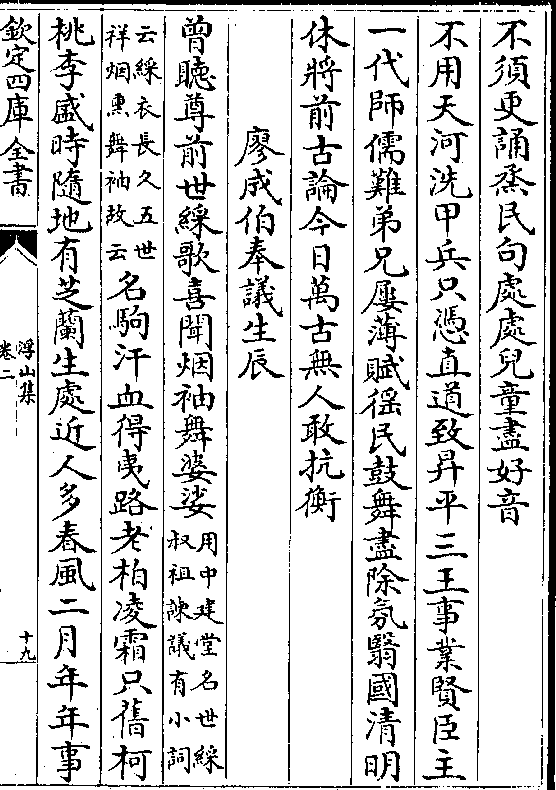 不須更誦烝民句處處兒童盡好音
不用天河洗甲兵只憑直道致昇平三王事業賢臣主
一代師儒難弟兄屢薄賦徭民鼓舞盡除氛翳國清明
休將前古論今日萬古無人敢抗衡
廖成伯奉議生辰
曾聽尊前世綵歌喜聞烟袖舞婆娑用中建堂名世綵
叔祖諫議有小詞
云綵衣長久五世
祥烟熏舞袖故云名駒汗血得夷路老柏凌霜只舊柯
桃李盛時隨地有芝蘭生處近人多春風二月年年事
欽定四庫全書
浮山集
卷二
十九